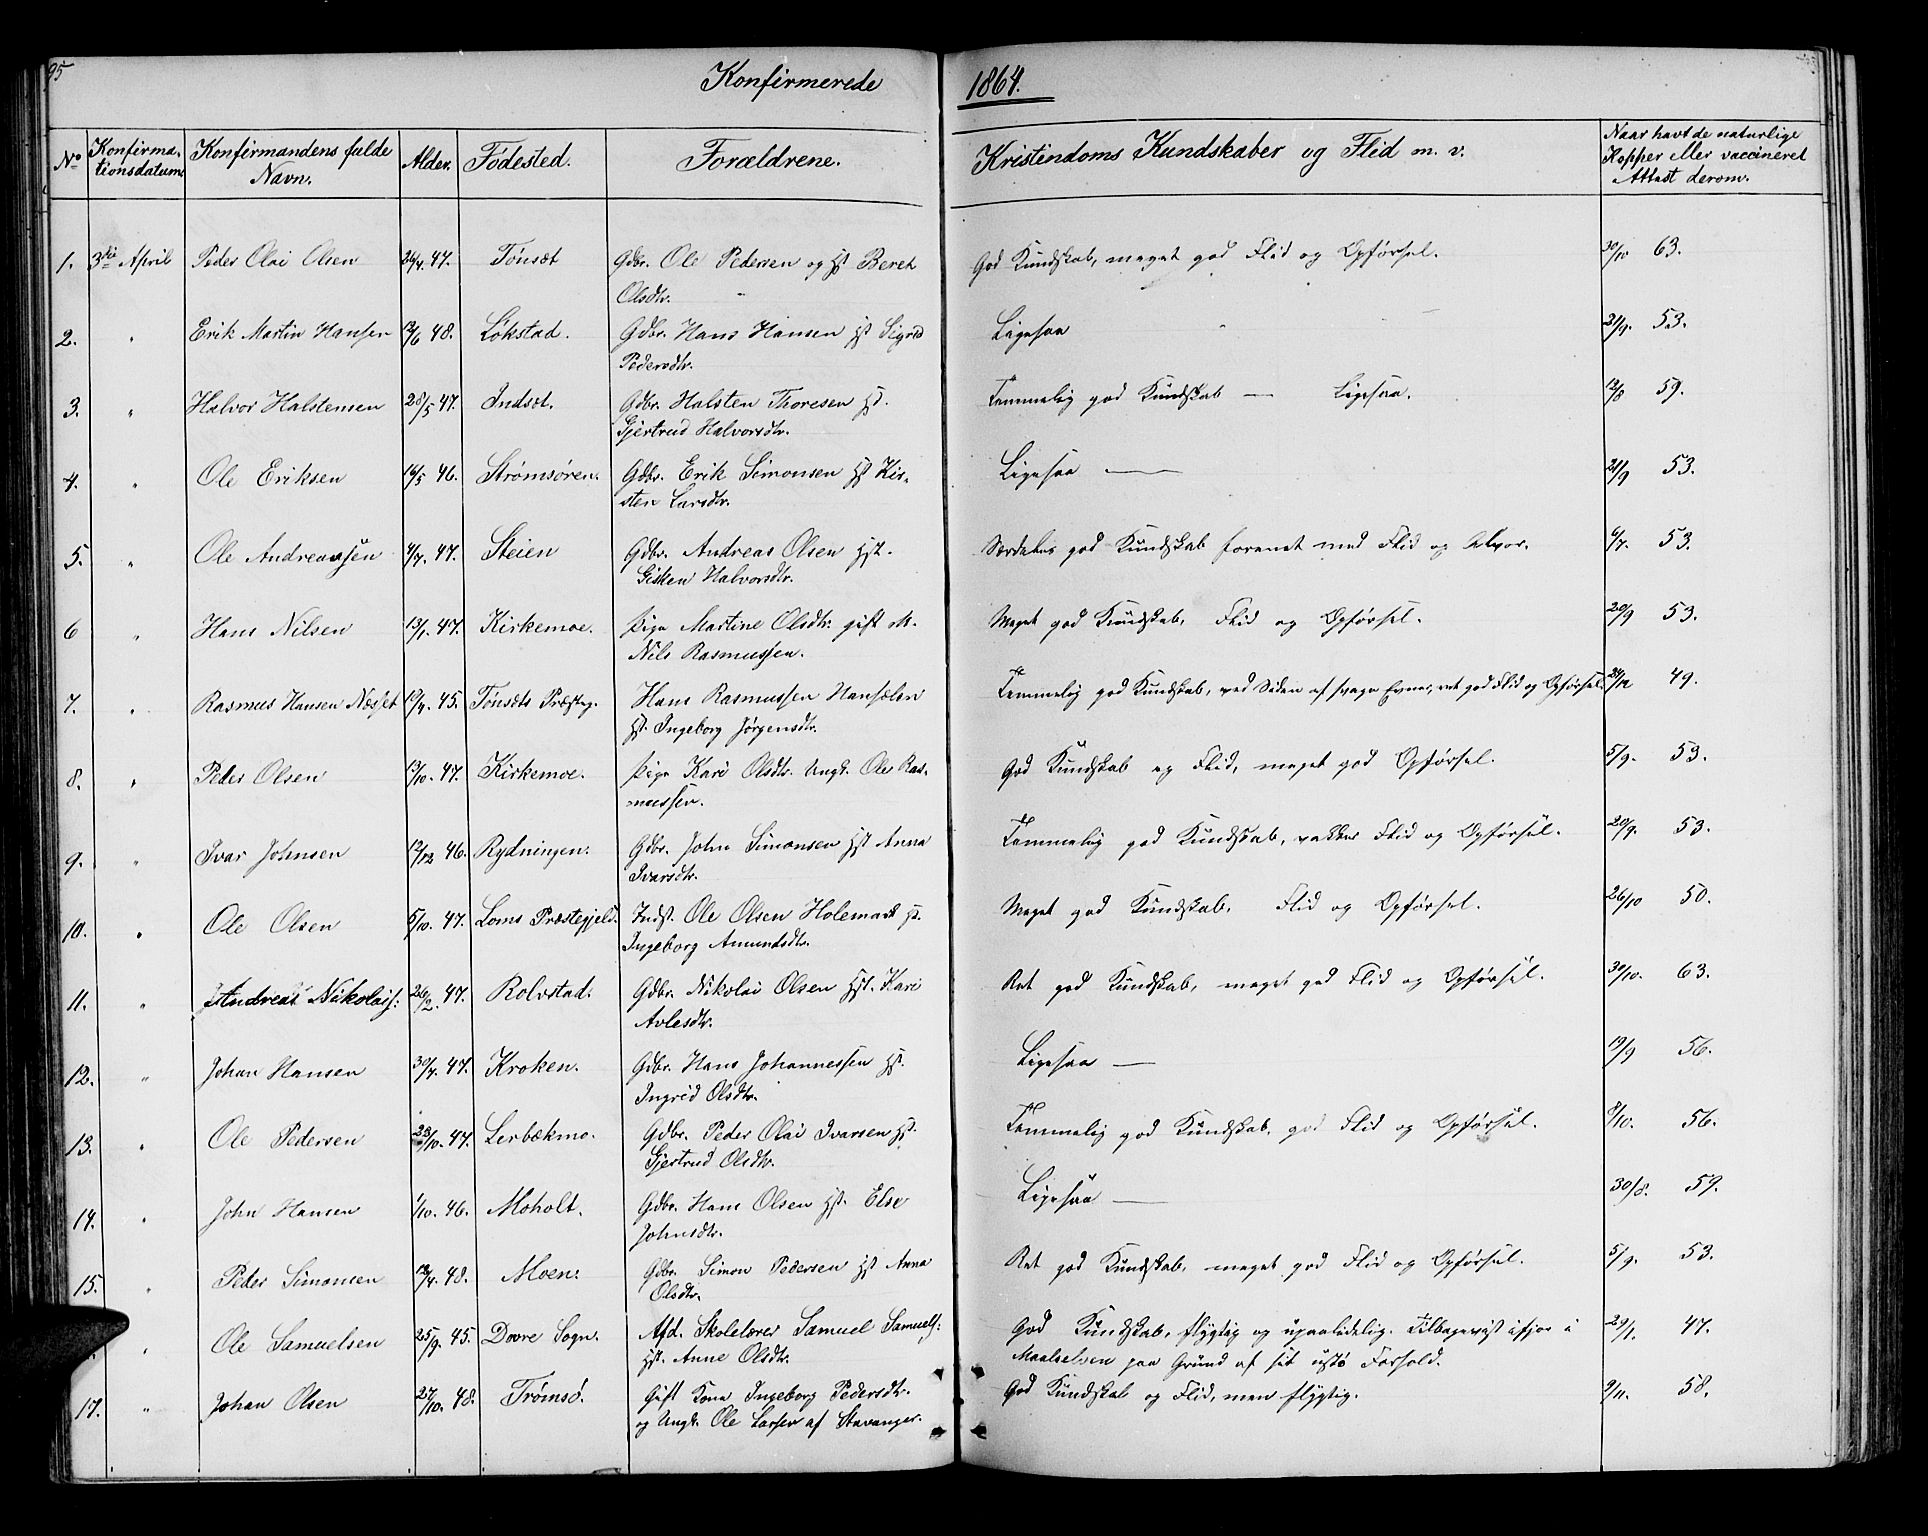 95
Konfirmerede 1864.
No Konfirmationsdatum Konfirmandens fulde Navn. Alder. Fødested. Forældrene. Kristendoms Kundskaber og Flid m. v. Naar havt de naturlige Kopper eller vaccineret Attest derom.
1. 3die April Peder Olai Olsen 24/4. 47. Tönsæt Gdbr. Ole Pedersen og Hst Beret God Kundskab, meget god Flid og Opførsel. 30/10 63.
Olsdtr.
2. " Erik Martin Hansen 12/6 48. Løkstad. Gdbr. Hans Hansen Hst Sigrid Ligesaa 21/9. 53.
Pedersdtr.
3. " Halvor Halstensen 28/5 47. Indsæt. Gdbr. Halsten Thoresen Hst. Temmelig god Kundskab — Ligesaa. 12/8 59.
Gjertrud Halvorsdtr.
4. " Ole Eriksen 16/5 46. Strømsøren. Gdbr. Erik Simonsen Hst Kir- Ligesaa — 21/9 53.
sten Larsdtr.
5. " Ole Andreassen 4/7. 47. Steien Gdbr. Andreas Olsen Hst. Særdeles god Kundskab forenet med Flid og Alvor. 6/7. 53.
Gisken Halvorsdtr.
6 " Hans Nilsen 13/1. 47. Kirkemoe. Pige Martine Olsdtr. gift M. Meget god Kundskab, Flid og Opførsel. 20/9 53.
Nils Rasmussen.
7. " Rasmus Hansen Næsset 19/4. 45. Tönsæts Præsteg. Hans Rasmussen Hansælen Temmelig god Kundskab, ved Siden af svage Evner, ret god Flid og Opførsel. 24/12 49.
Hst. Ingeborg Jørgensdtr.
8. " Peder Olsen 13/10. 47. Kirkemoe. Pige Kari Olsdtr. Ungk. Ole Ras- God Kundskab og Flid, meget god Opførsel. 5/9. 53.
mussen.
9. " Ivar Johnsen 12/12 46. Rydningen. Gdbr. John Simonsen Hst Anna Temmelig god Kundskab, vakker Flid og Opførsel. 20/9. 53.
Ivarsdtr.
10. " Ole Olsen 5/10. 47. Loms Præstegjeld. Indst. Ole Olsen Holemark Hst. Meget god Kundskab, Flid og Opførsel. 26/10 50.
Ingeborg Amundsdtr.
11. " Andreas Nikolais: 26/2. 47. Rolvstad. Gdbr. Nikolai Olsen Hst. Kari Ret god Kundskab, meget god Flid og Opførsel. 30/10. 63.
Avlesdtr.
12. " Johan Hansen 30/4. 47. Kroken. Gdbr. Hans Johannessen Hst. Ligesaa — 19/9 56.
Ingrid Olsdtr.
13. " Ole Pedersen 23/10. 47. Lerbækmo. Gdbr. Peder Olai Ivarsen Hst. Temmelig god Kundskab, god Flid og Opførsel. 8/10. 56.
Gjertrud Olsdtr.
14. " John Hansen 1/10. 46. Moholt. Gdbr. Hans Olsen Hst. Else Ligesaa — 30/8. 59.
Johnsdtr.
15. " Peder Simonsen 12/4. 48. Moen. Gdbr. Simon Pedersen Hst Anna Ret god Kundskab, meget god Flid og Opførsel. 5/9. 53.
Olsdtr.
" Ole Samuelsen 25/9. 45. Dovre Sogn. Afd. Skolelærer Samuel Samuels: God Kundskab, flygtig og upaalidelig. Tilbagevist ifjor i 29/1. 47.
Hst. Anne Olsdtr. Maalselven paa Grund af sit Forhold.
17. " Johan Olsen 27/10. 48. Tromsø. Gift Kone Ingeborg Pedersdtr. God Kundskab og Flid, men flygtig. 9/11. 58.
og Ungk. Ole Larsen af Stavanger.